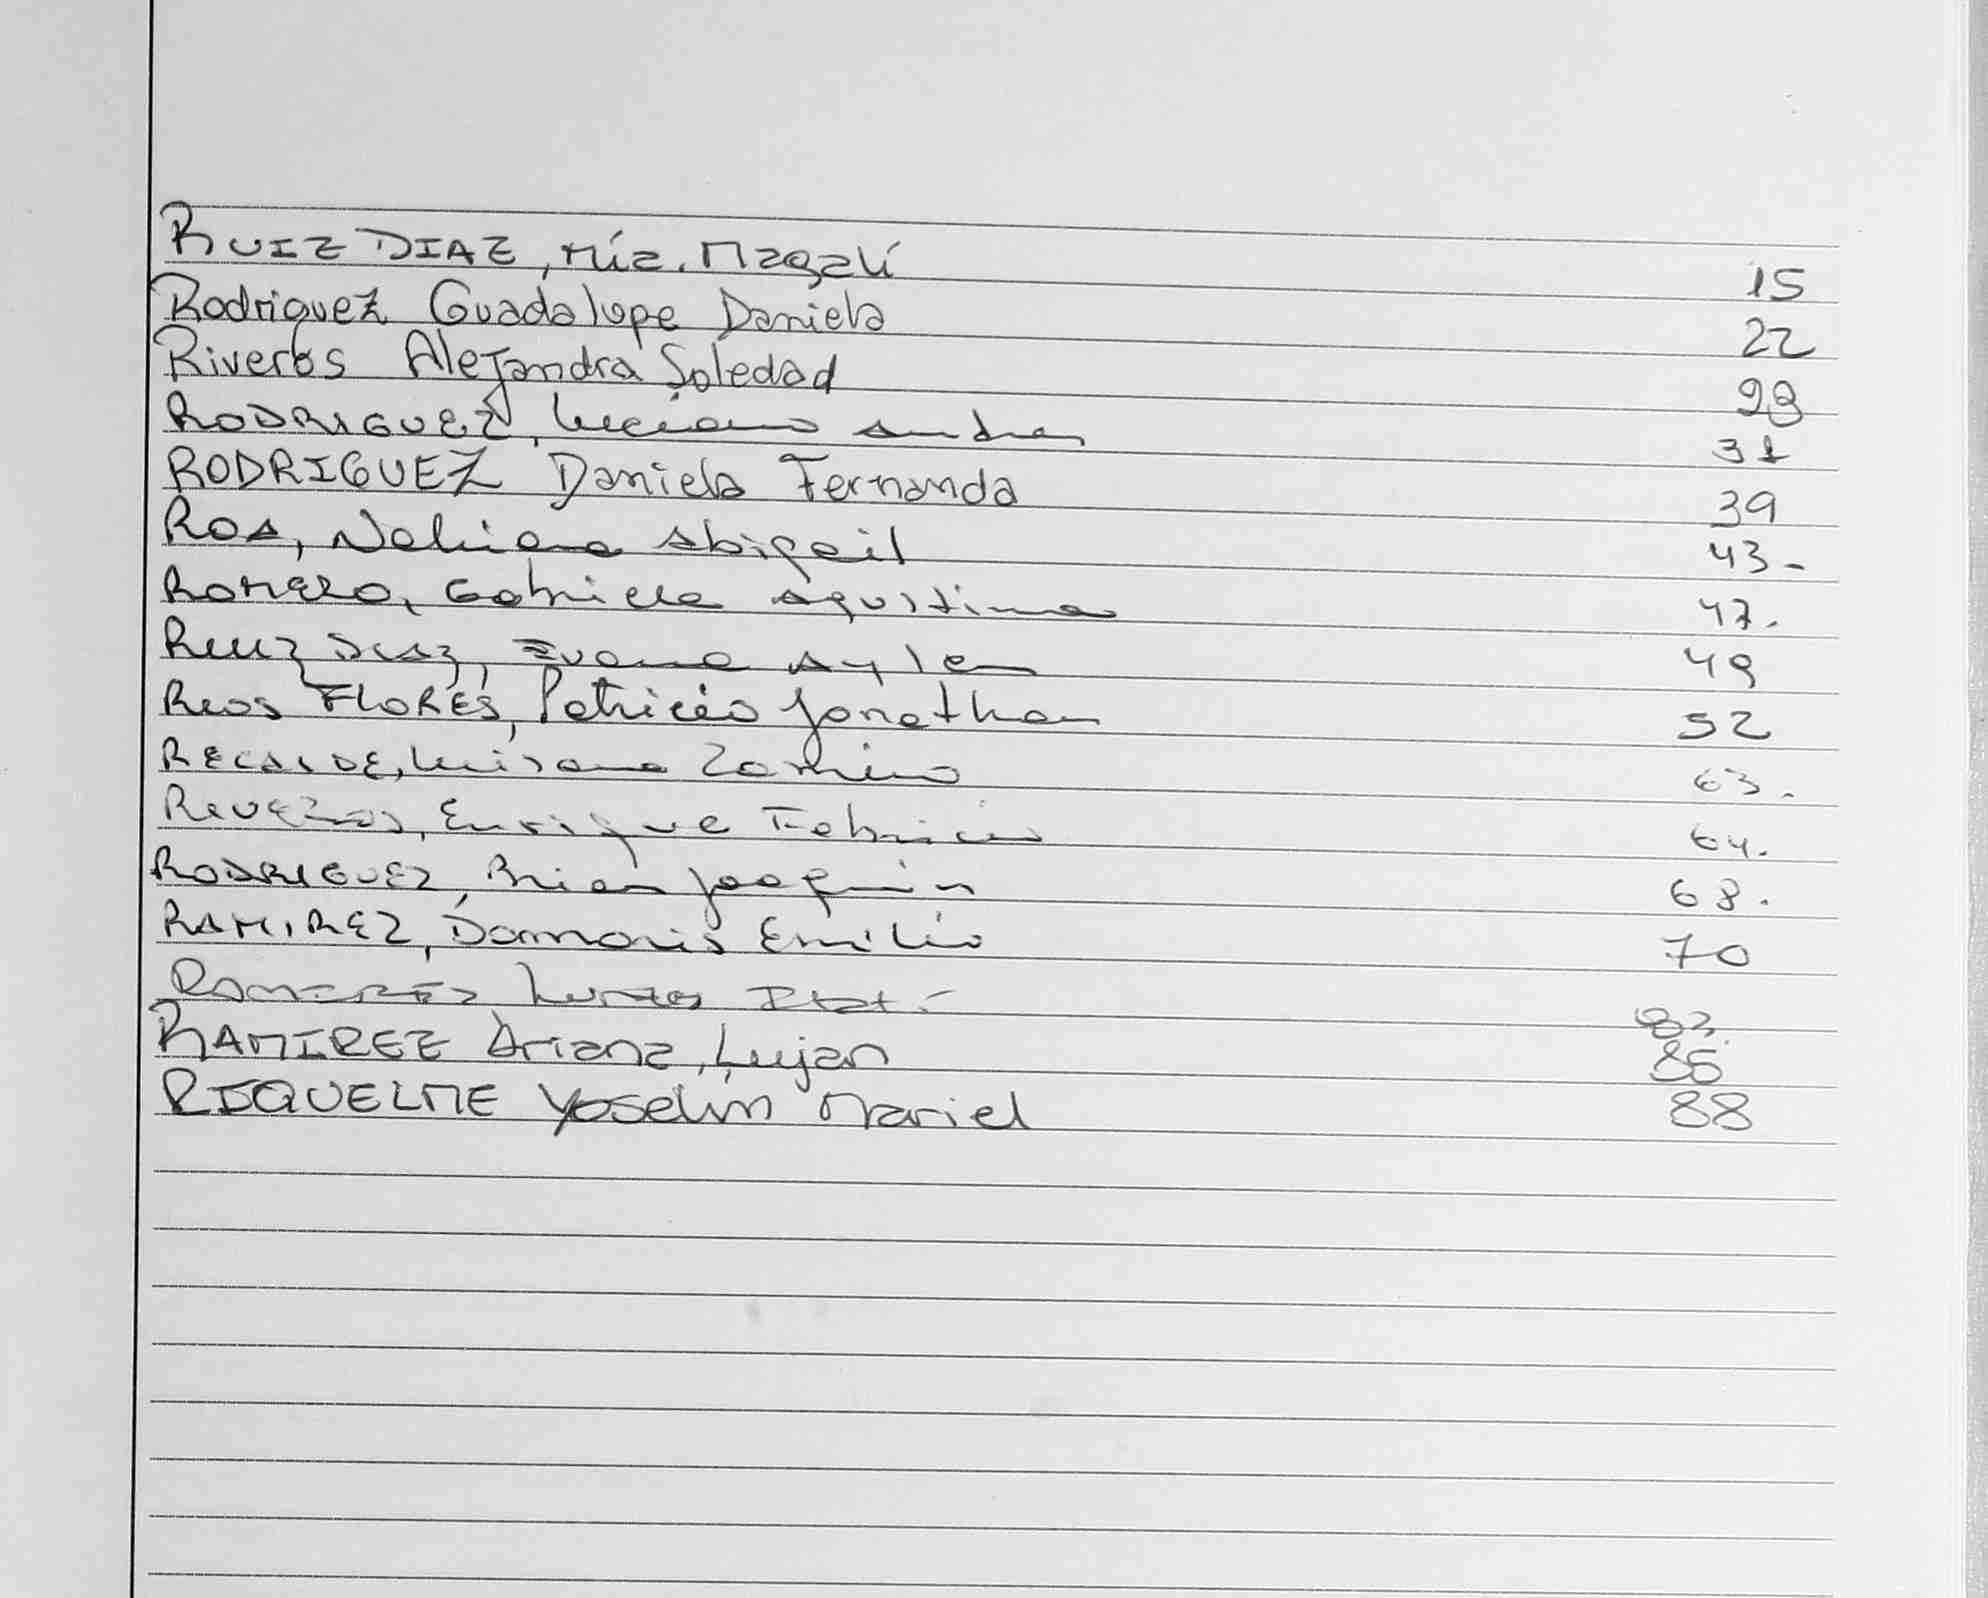 RUIZ DIAZ, Mía. Magalí 15
Rodriguez Guadalupe Daniela 22
Riveros Alejandra Soledad 29
RODRIGUEZ, Luciano Andres 31
RODRIGUEZ Daniela Fernanda 39
ROA, Nahiara Abigail 43-
ROMERO, Gabriela Agustina 47.
RUIZ DIAZ, Evana Aylen 49
Rios FLORES, Patricio Jonathan 52
RECALDE, Luisana 63.
Riveros, Enrique Fabricio 64.
RODRIGUEZ, Brian Joaquin 68.
RAMIREZ, Damaris Emilia 70
Itatí
RAMIREZ Ariana, Lujan 86
RIQUELME Yoselin Mariel 88